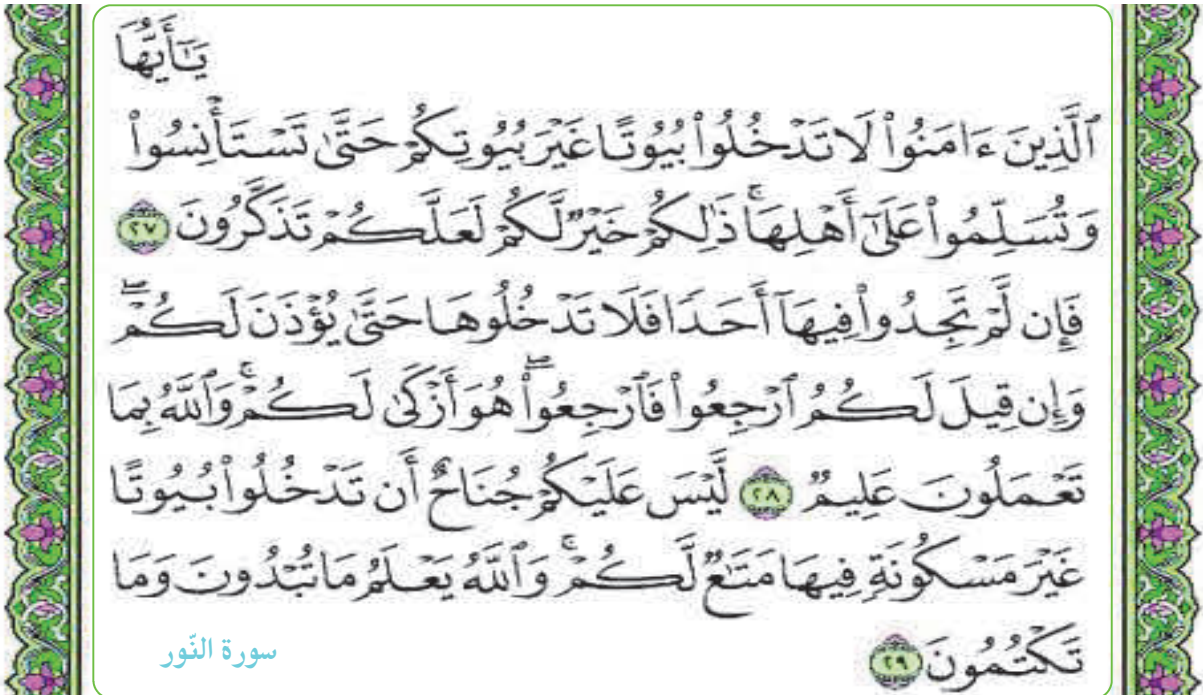 يَـٰٓأَيُّهَا
ٱلَّذِينَ ءَامَنُوا۟ لَا تَدْخُلُوا۟ بُيُوتًا غَيْرَ بُيُوتِكُمْ حَتَّىٰ تَسْتَأْنِسُوا۟
وَتُسَلِّمُوا۟ عَلَىٰٓ أَهْلِهَا ۚ ذَٰلِكُمْ خَيْرٌ لَّكُمْ لَعَلَّكُمْ تَذَكَّرُونَ ٢٧
فَإِن لَّمْ تَجِدُوا۟ فِيهَآ أَحَدًا فَلَا تَدْخُلُوهَا حَتَّىٰ يُؤْذَنَ لَكُمْ ۖ
وَإِن قِيلَ لَكُمُ ٱرْجِعُوا۟ فَٱرْجِعُوا۟ ۖ هُوَ أَزْكَىٰ لَكُمْ ۚ وَٱللَّهُ بِمَا
تَعْمَلُونَ عَلِيمٌ ٢٨ لَّيْسَ عَلَيْكُمْ جُنَاحٌ أَن تَدْخُلُوا۟ بُيُوتًا
غَيْرَ مَسْكُونَةٍ فِيهَا مَتَـٰعٌ لَّكُمْ ۚ وَٱللَّهُ يَعْلَمُ مَا تُبْدُونَ وَمَا
تَكْتُمُونَ ٢٩
سورة النّور